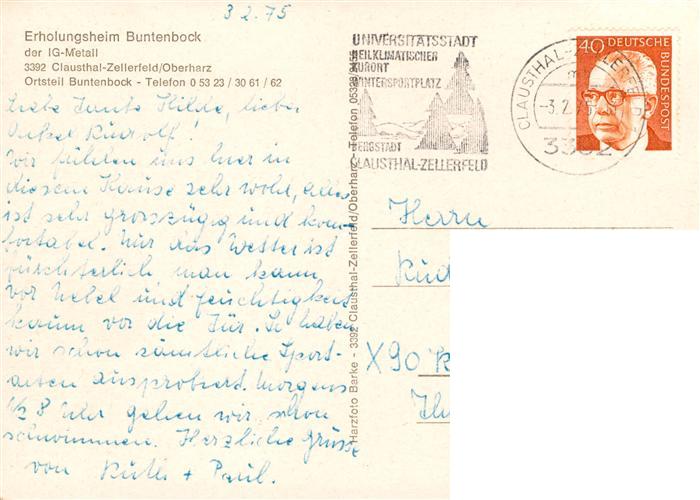 3 2. 75
Erholungsheim Buntenbock
der IG-Metall
3392 Clausthal-Zellerfeld/Oberharz
Ortsteil Buntenbock - Telefon 0 53 23 / 30 61 / 62
Liebe Tante Hilde, lieber
Onkel Rudolf!
Wir fühlen uns hier in
diesem Hause sehr wohl, alles
ist sehr grosszügig und kom-
fortabel. Nur das Wetter ist
fürchterlich man kann
vor Nebel und Feuchtigkeit
kaum vor die Tür. So haben
wir schon sämtliche Sport-
arten ausprobiert. Morgens
1/2 8 Uhr gehen wir schon
schwimmen. Herzliche Grüsse
von Ruth + Paul.
Harzfoto Barke - 3392 Clausthal-Zellerfeld/Oberharz - Telefon 05323
UNIVERSITÄTSSTADT
HEILKLIMATISCHER
KURORT
WINTERSPORTPLATZ
BERGSTADT
CLAUSTHAL-ZELLERFELD
CLAUSTHAL-ZELLERFELD
-3.2.75
3392
40 DEUTSCHE
BUNDESPOST
Herrn
Rud
X90